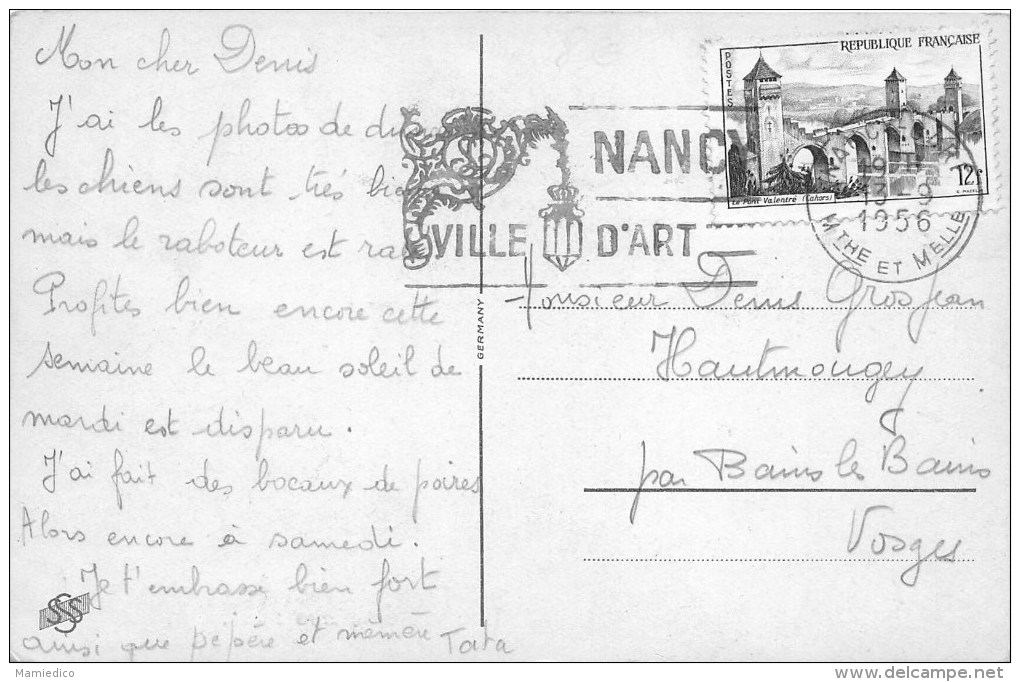 Mon cher Denis
J'ai les photos de
les chiens sont très
mais le raboteur est
Profites bien encore cette
semaine le beau soleil de
mardi est disparu.
J'ai fait des bocaux de poires
Alors encore à samedi.
Je t'embrasse bien fort
ainsi que pépère et mémère
Tata
SSS
GERMANY
NANCY
VILLE D'ART
REPUBLIQUE FRANÇAISE
POSTES
12F
Le Pont Valentré (Cahors)
13-9
1956
MTHE ET MELLE
Monsieur Denis Grosjean
Hautmougey
par Bains les Bains
Vosges
Mamiedico
www.delcampe.net